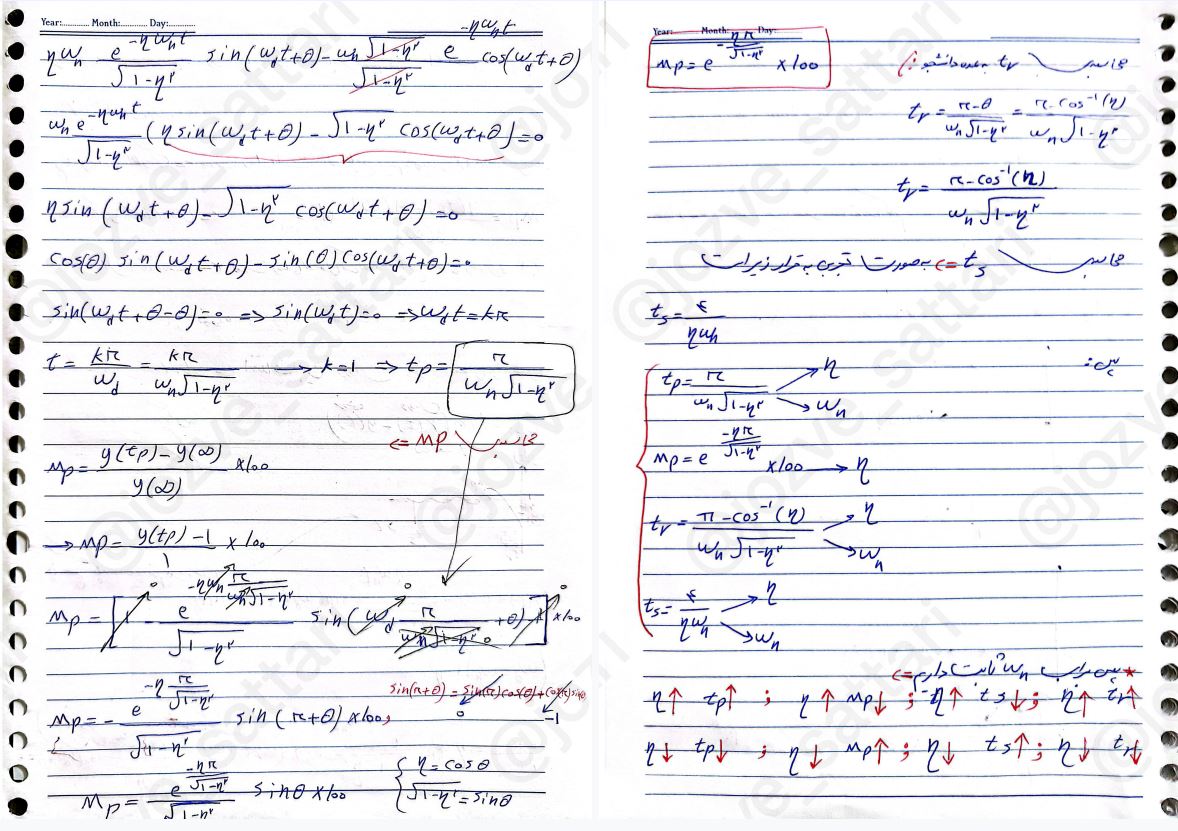 Year:............ Month:............ Day:............
ηω_n e^(-ηω_n t)/√(1-η²) sin(ω_d t+θ) - ω_n √(1-η²)/√(1-η²) e^(-ηω_n t) cos(ω_d t+θ)
ω_n e^(-ηω_n t)/√(1-η²) (η sin(ω_d t+θ) - √(1-η²) cos(ω_d t+θ)) = 0
η sin(ω_d t+θ) - √(1-η²) cos(ω_d t+θ) = 0
cos(θ) sin(ω_d t+θ) - sin(θ) cos(ω_d t+θ) = 0
sin(ω_d t+θ-θ) = 0 => sin(ω_d t) = 0 => ω_d t = kπ
t = kπ/ω_d = kπ/(ω_n√(1-η²)) → k=1 => t_p = π/(ω_n√(1-η²))
محاسبه Mp <=
Mp = (y(tp) - y(∞))/y(∞) ×100
→ Mp = (y(tp) - 1)/1 × 100
Mp = [1 - e^(-ηω_n π/(ω_n√(1-η²)))/√(1-η²) sin(ω_d π/(ω_n√(1-η²)) + θ) - 1] ×100
sin(π+θ) = sin(π)cos(θ) + cos(π)sinθ
0 -1
Mp = - e^(-η π/√(1-η²))/√(1-η²) sin(π+θ) ×100 ;
Mp = e^(-ηπ/√(1-η²))/√(1-η²) sinθ ×100 { η = cosθ
√(1-η²) = sinθ
Year: Month: Day:
Mp = e^(-ηπ/√(1-η²)) ×100
محاسبه tr به عهده دانشجو :)
tr = (π-θ)/(ω_n√(1-η²)) = (π-cos⁻¹(η))/(ω_n√(1-η²))
tr = (π-cos⁻¹(η))/(ω_n√(1-η²))
محاسبه ts <= به صورت تقریبی به قرار زیر است
ts = ۴/(ηω_n)
پس:
tp = π/(ω_n√(1-η²)) → η
→ ω_n
Mp = e^(-ηπ/√(1-η²)) ×100 → η
tr = (π-cos⁻¹(η))/(ω_n√(1-η²)) → η
→ ω_n
ts = ۴/(ηω_n) → η
→ ω_n
* پس برای ω_n ثابت داریم <=
η↑ tp↑ ; η↑ Mp↓ ; η↑ ts↓ ; η↑ tr↑
η↓ tp↓ ; η↓ Mp↑ ; η↓ ts↑ ; η↓ tr↓
@jozve_sattari